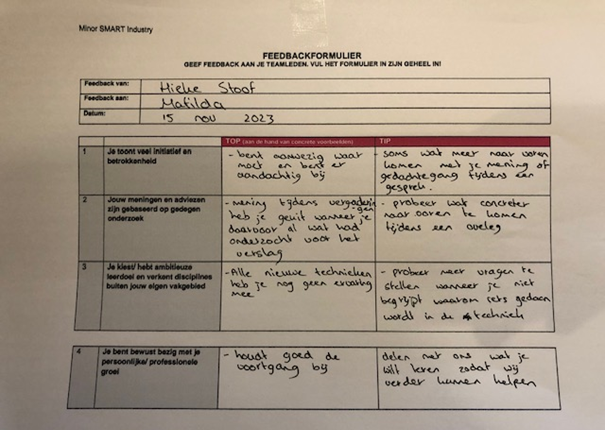 Minor SMART Industry
FEEDBACKFORMULIER
GEEF FEEDBACK AAN JE TEAMLEDEN. VUL HET FORMULIER IN ZIJN GEHEEL IN!
Feedback van: Hieke Stoof
Feedback aan: Matilda
Datum: 15 nov 2023
TOP (aan de hand van concrete voorbeelden)
TIP
1
Je toont veel initiatief en
betrokkenheid
- bent aanwezig waar
moet en bent er
aandachtig bij
- soms wat meer naar voren
komen met je mening of
gedachtegang tijdens een
gesprek.
2
Jouw meningen en adviezen
zijn gebaseerd op gedegen
onderzoek
- mening tijdens vergaderin
gen
heb je geuit wanneer je
daarvoor al wat had
onderzocht voor het
verslag
- probeer wat concreter
naar voren te komen
tijdens een overleg
3
Je kiest/ hebt ambitieuze
leerdoel en verkent disciplines
buiten jouw eigen vakgebied
- Alle nieuwe technieken
heb je nog geen ervaring
mee
- probeer meer vragen te
stellen wanneer je niet
begrijpt waarom iets gedaan
wordt in de techniek
4
Je bent bewust bezig met je
persoonlijke/ professionele
groei
- houdt goed de
voortgang bij
delen met ons wat je
wilt leren zodat wij
verder kunnen helpen